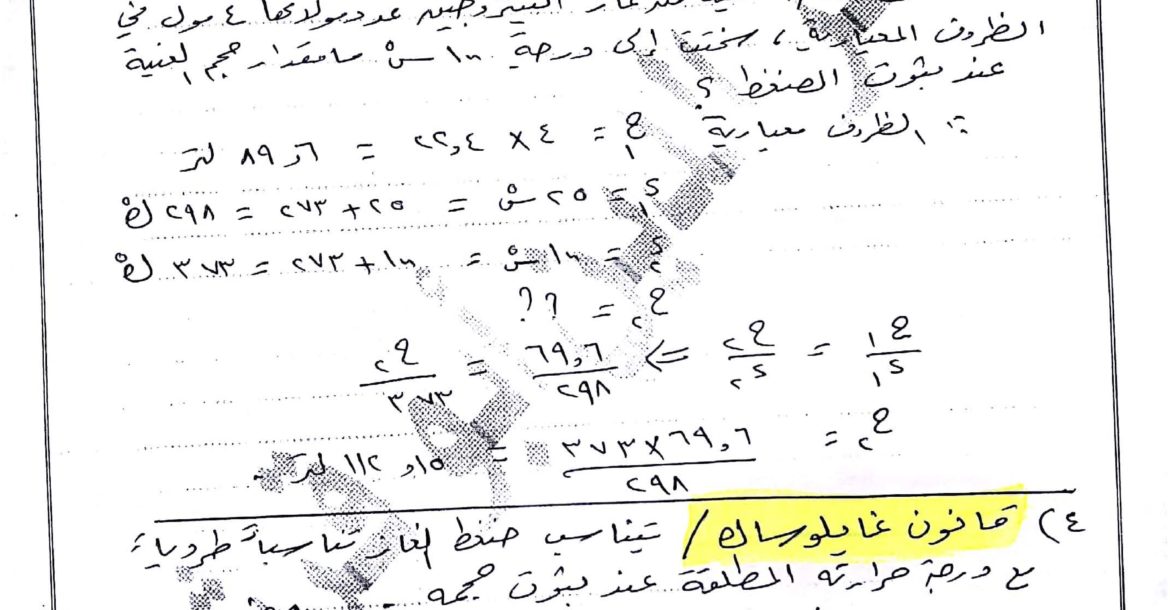 غاز النيتروجين عدد مولاتها ٤ مول في
الظروف المعيارية ، سخنت إلى درجة ١٠٠ سْ ما مقدار حجم العينة
عند ثبوت الضغط ؟
∵ الظروف معيارية ح١ = ٤ × ٢٢,٤ = ٨٩,٦ لتر
د١ = ٢٥ سْ = ٢٥ + ٢٧٣ = ٢٩٨ كْ
د٢ = ١٠٠ سْ = ١٠٠ + ٢٧٣ = ٣٧٣ كْ
ح٢ = ؟؟
ح١/د١ = ح٢/د٢ <= ٦٩,٦/٢٩٨ = ح٢/٣٧٣
ح٢ = ٣٧٣×٦٩,٦/٢٩٨ = ١١٢,١٥ لتر .
٤) قانون غايلوساك / يتناسب ضغط الغاز تناسباً طردياً
مع درجة حرارته المطلقة عند ثبوت حجمه .